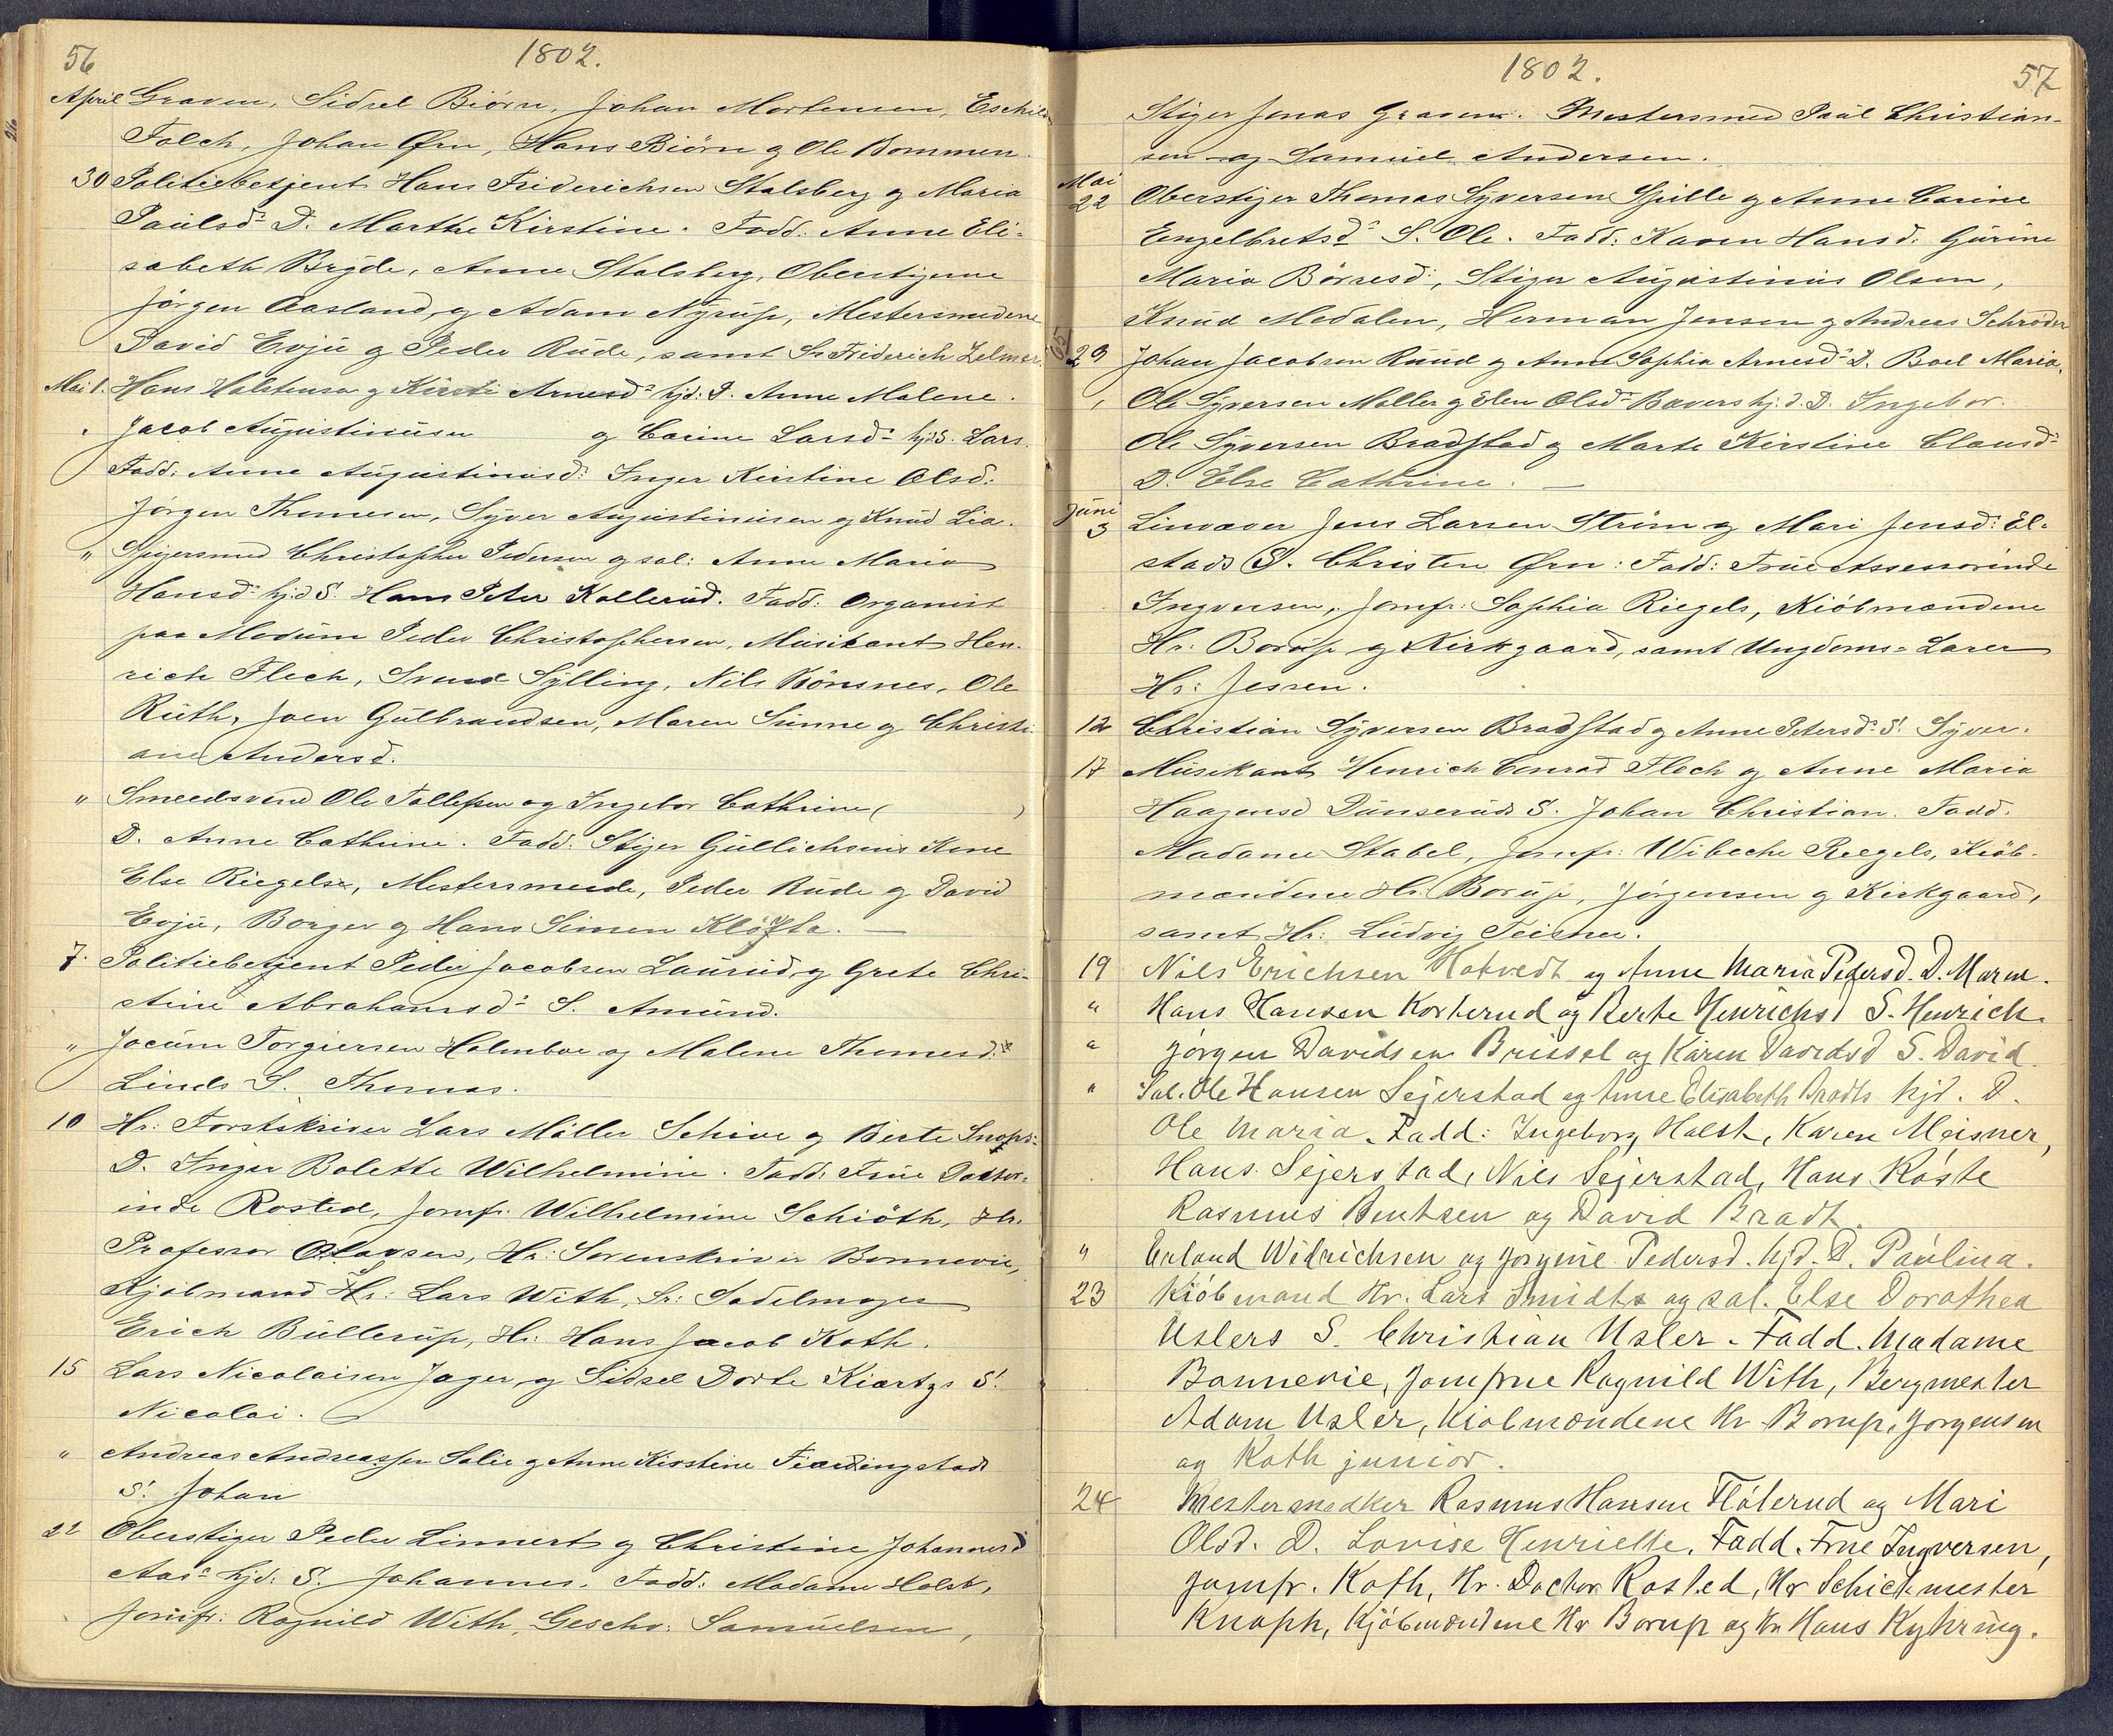 56
1802.
April Graven, Sidsel Biørn, Johan Mortensen, Eschild
Falch, Johan Ørn, Hans Biörn og Ole Bommen.
30 Politiebetjent Hans Friderichsen Stalsberg og Maria
Paulsd: D. Marthe Kirstine. Fadd: Anne Eli-
sabeth Bryde, Anne Stalsberg, Oberstigerne
Jörgen Aasland og Adam Nyrup, Mestersmedene
David Evju og Peder Rude, samt Sr. Friderich Zelmer.
Mai 1. Hans Halstensen og Kirsti Arnesd: hjd: D. Anne Malene.
Jacob Augustinusen og Carine Larsd: hjd S. Lars.
Fadd: Anne Augustinusd: Inger Kirstine Olsd:
Jörgen Thomesen, Syver Augustinusen og Knud Lia.
" Spigersmed Christopher Pedersen og sal: Anne Maria
Hansd: hjd S. Hans Peter Kollerud. Fadd: Organist
paa Modum Peder Christophersen, Musikant Hen-
rich Flech, Svend Sylling, Nils Hönsnes, Ole
Ruth, Joen Gulbrandsen, Maren Sunne og Christi-
ane Andersd.
" Smedsvend Ole Tollefsen og Ingebor Cathrine ( )
D. Anne Cathrine. Fadd: Stiger Gullichsens Kone
Else Riegels, Mestersmede, Peder Rude og David
Evju, Borger og Hans Simen Kløfta. —
7. Politiebetjent Peder Jacobsen Laurud og Grete Chri-
stine Abrahamsd: S. Amund.
" Jocum Torgiersen Holmboe og Malene Thomesd:
Linds S. Thomas.
10 Hr: Forstskriver Lars Möller Schive og Berte Knophs
D. Inger Bolette Wilhelmine. Fadd: Frue Doctor-
inde Rosted, Jomfr: Wilhelmine Schiöth, Hr.
Professor Olavsen, Hr: Sorenskriver Bonnevie,
Kjöbmand Hr: Lars With, Sr: Sadelmager
Erich Bullerup, Hr: Hans Jacob Koth.
15 Lars Nicolaisen Jager og Sidsel Dorte Kiærtgs S.
Nicolai.
" Andreas Andreassen Solie og Anne Kirstine Fiærdingstads
S. Johan
22 Oberstiger Peder Linnert og Christine Johannesd
Aas: hjd: S. Johannes. Fadd: Madame Holst,
Jomfr: Ragnild With, Geschv: Samuelsen,
1802.
57
Stiger Jonas Graven. Mestersmed Paul Christian-
sen og Samuel Andersen.
Mai
22 Oberstiger Thomas Syversen Spille og Anne Carine
Engelbretsd: S. Ole. Fadd: Karen Hansd: Gurine
Maria Börresd:, Stiger Augustinius Olsen,
Knud Medalen, Herman Jensen og Andreas Schröder
29 Johan Jacobsen Ruud og Anne Sophia Arnesd: D. Boel Maria.
" Ole Syversen Moller og Elen Olsd: Bævers hjd. D. Ingebor.
Ole Syversen Bradstad og Marte Kirstine Clausd:
D. Else Cathrine. —
Juni
3 Linvæver Jens Larsen Ström og Mari Jensd: El-
stads S. Christen Ørn: Fadd: Frue Assessorinde
Ingversen, Jomfr: Sophia Riegels, Kiöbmændene
Hr: Borup og Kirkgaard, samt Ungdoms-Lærer
Hr: Jessen.
12 Christian Syversen Bradstad og Anne Petersd: S. Syver.
17 Musikant Henrich Conrad Flech og Anne Maria
Haagensd Dunseruds S. Johan Christian. Fadd.
Madame Stabel, Jomfr: Wibeche Riegels, Kiöb-
mændene Hr. Borup, Jörgensen og Kirkgaard,
samt Hr: Ludvig Teisner.
19 Nils Erichsen Hotvedt og Anne Maria Pedersd. D. Maren.
" Hans Hansen Korterud og Berte Henrichsd S. Henrich.
" Jörgen Davidsen Brissel og Karen Davidsd S. David
" Sal. Ole Hansen Sejerstad og Anne Elisabeth Bradts hjd. D.
Ole Maria. Fadd: Ingeborg Holst, Karen Meisner,
Hans Sejerstad, Nils Sejerstad, Hans Röste
Rasmus Bentsen og David Bradt.
" Erland Widrichsen og Jorgine Pedersd. hjd. D. Paulina.
23 Kiöbmand Hr. Lars Smidts og sal. Else Dorothea
Uslers S. Christian Usler. Fadd. Madame
Bonnevie, Jomfrue Ragnild With, Bergmester
Adam Usler, Kiöbmændene Hr Borup, Jorgensen
og Koth junior.
24 Mestersnedker Rasmus Hansen Flölerud og Mari
Olsd. D. Lovise Henriette. Fadd. Frue Ingversen,
Jomfr. Koth, Hr. Doctor Rosted, Hr Schichtmester
Knoph, Kjöbmændene Hr Borup og Hr Hans Kyhring.